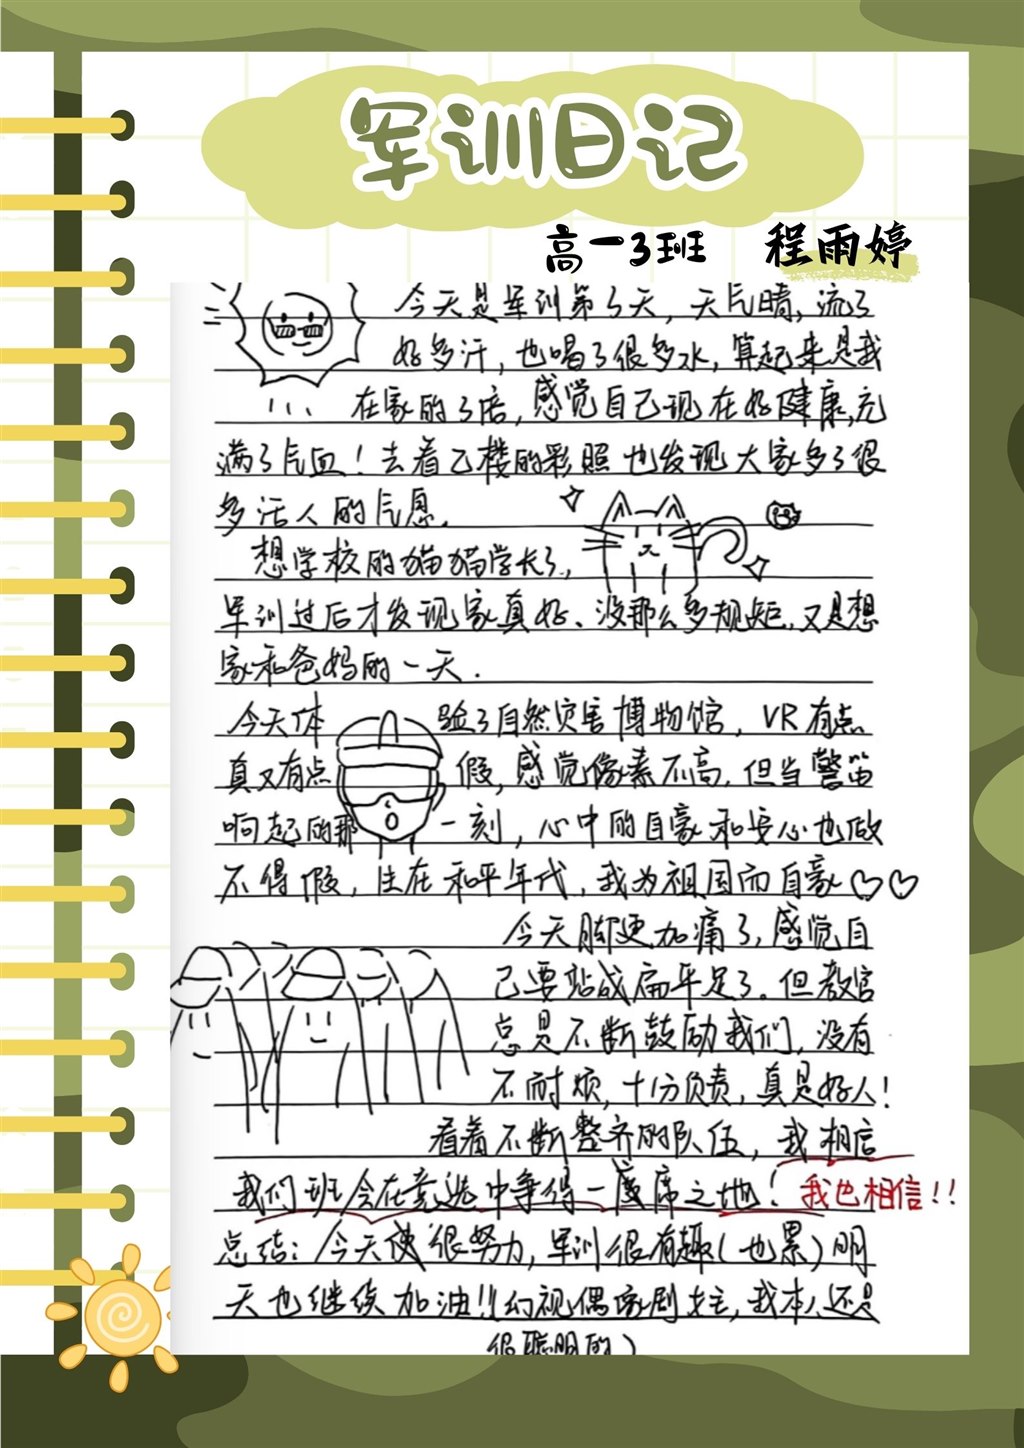 军训日记
高一3班 程雨婷
今天是军训第5天，天气晴，流了
好多汗，也喝了很多水，算起来是我
在家的3倍，感觉自己现在好健康，充
满了气血！去看乙楼的彩照也发现大家多了很
多活人的气息.
想学校的猫猫学长了，
军训过后才发现家真好、没那么多规矩，又是想
家和爸妈的一天.
今天体验了自然灾害博物馆，VR有点
真又有点假，感觉像素不高，但当警笛
响起的那一刻，心中的自豪和安心也做
不得假，生在和平年代，我为祖国而自豪♡♡
今天脚更加痛了，感觉自
己要站成扁平足了。但教官
总是不断鼓励我们，没有
不耐烦，十分负责，真是好人！
看着不断整齐的队伍，我相信
我们班会在竞选中争得一席之地！我也相信！！
总结：今天使很努力，军训很有趣（也累）明
天也继续加油！！（幻视偶像剧女主，我本人还是
很聪明的）